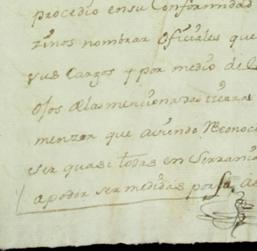 procedio en su Conformidad
zinos nombrar Oficiales que
sus Cargos y por medio de
ojos a las mencionadas tierras
menzar que aviendo Reconoc
ser quasi todas en Serrania
a poder ser medidas por